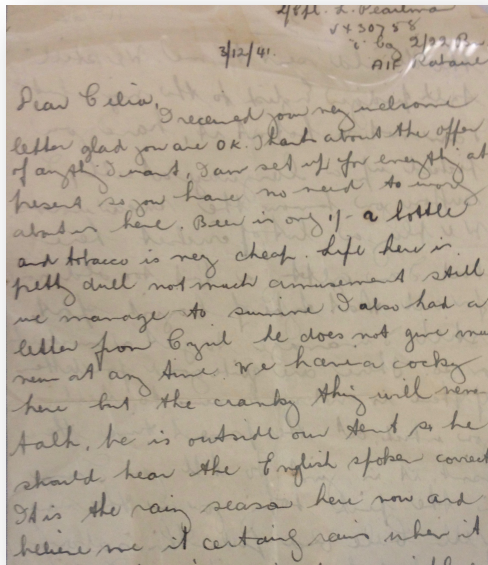 L. Pearlman
VX30758
"C" Coy 2/22 Bn
3/12/41.
AIF Rabaul
Dear Celia,
I received your very welcome
letter glad you are OK. Thanks about the offer
of anything I want, I am set up for everything at
present so you have no need to worry
about us here. Beer is only 1/- a bottle
and tobacco is very cheap. Life here is
pretty dull not much amusement still
we manage to survive I also had a
letter from Cyril he does not give much
news at any time. We have a cocky
here but the cranky thing will never
talk, he is outside our tent so he
should hear the English spoken correct
It is the rainy season here now and
believe me it certainly rains when it